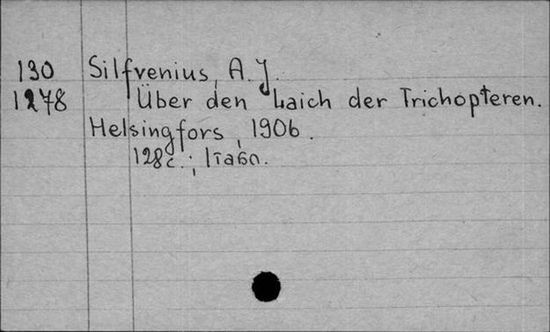 130 Silfvenius, A. J.
1278 Über den Laich der Trichopteren.
Helsingfors, 1906.
128 с.; 1 табл.